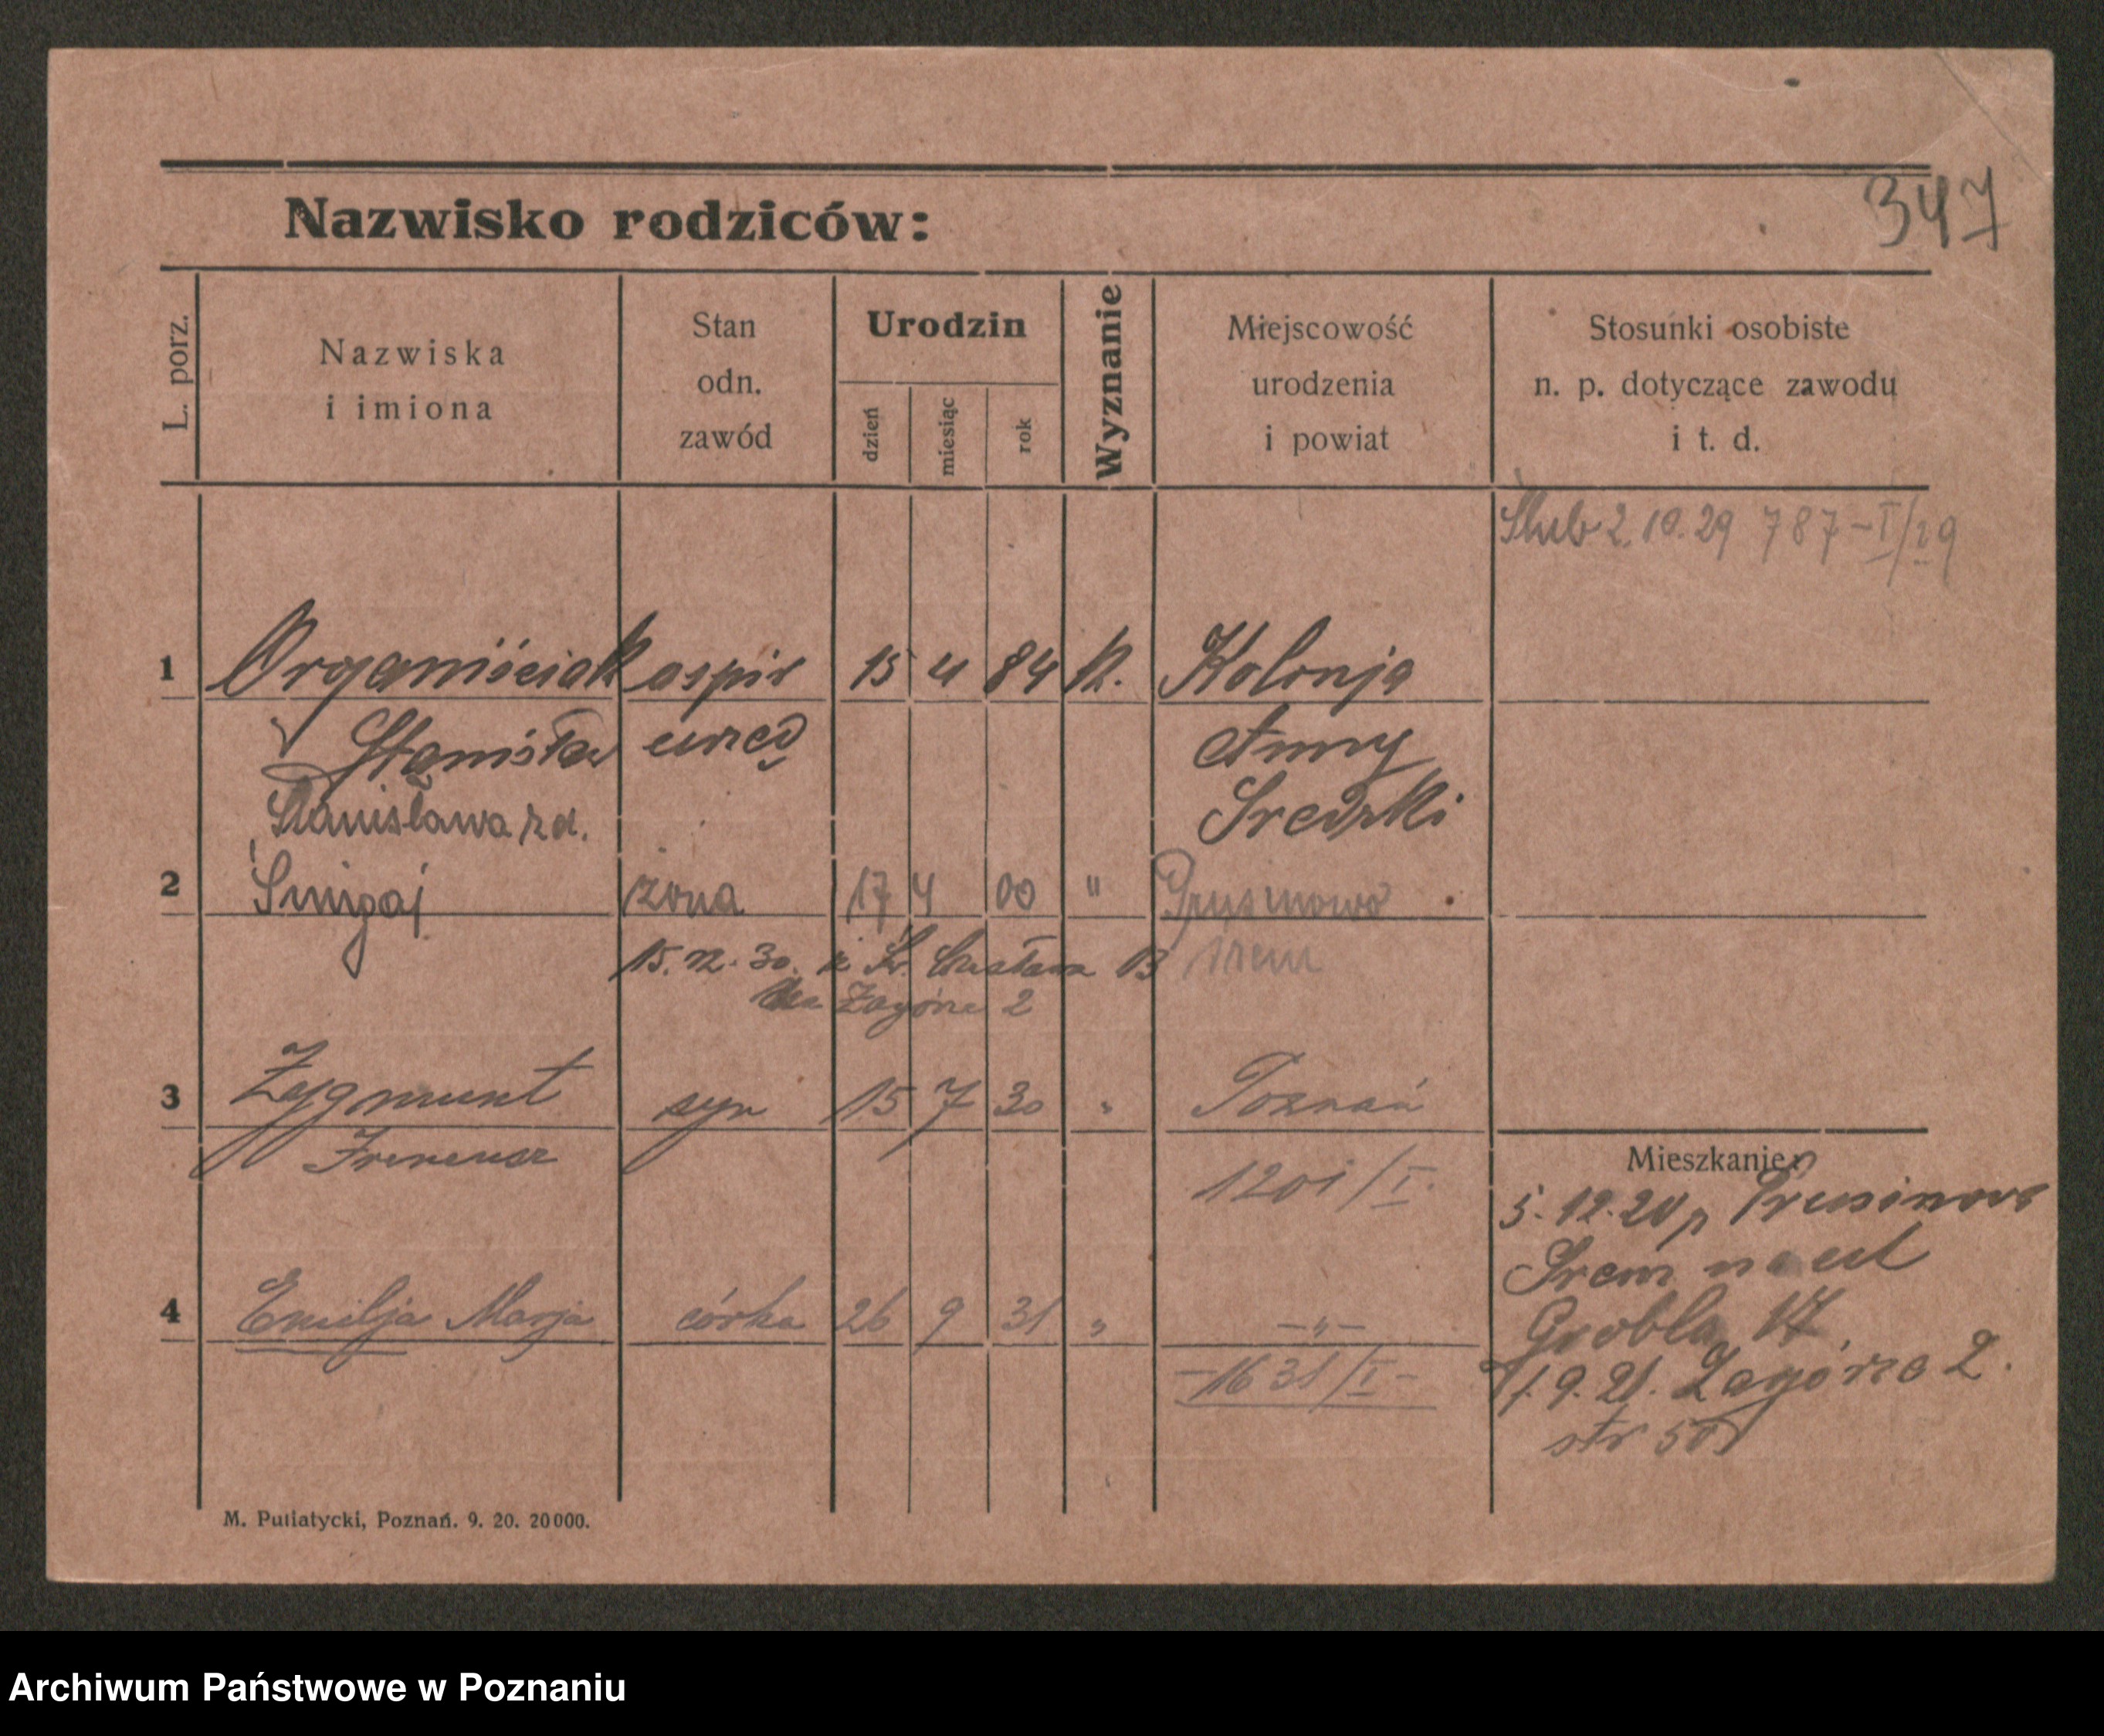 347
Nazwisko rodziców:
L. porz.
Nazwiska
i imiona
Stan
odn.
zawód
Urodzin
dzień
miesiąc
rok
Wyznanie
Miejscowość
urodzenia
i powiat
Stosunki osobiste
n. p. dotyczące zawodu
i t. d.
Ślub 2.10.29 787-I/29
1 Organiściak aspir 15 4 84 k. Kolonja
Stanisław urzęd Anny
Stanisława zd. Średzki
2 Śmigaj żona 17 4 00 "
15. 12. 30. Św. 13 Śrem
Zagórze 2
3 Zygmunt syn 15 7 30 " Poznań
Ireneusz 1201/I.
Mieszkanie:
5.12.20 Prusinowo
Śrem na ul
4 Emilja Marja córka 26 9 31 " -"-
Grobla
-1631/I-
1.9.21. Zagórze 2.
str
M. Putiatycki, Poznań. 9. 20. 20000.
Archiwum Państwowe w Poznaniu